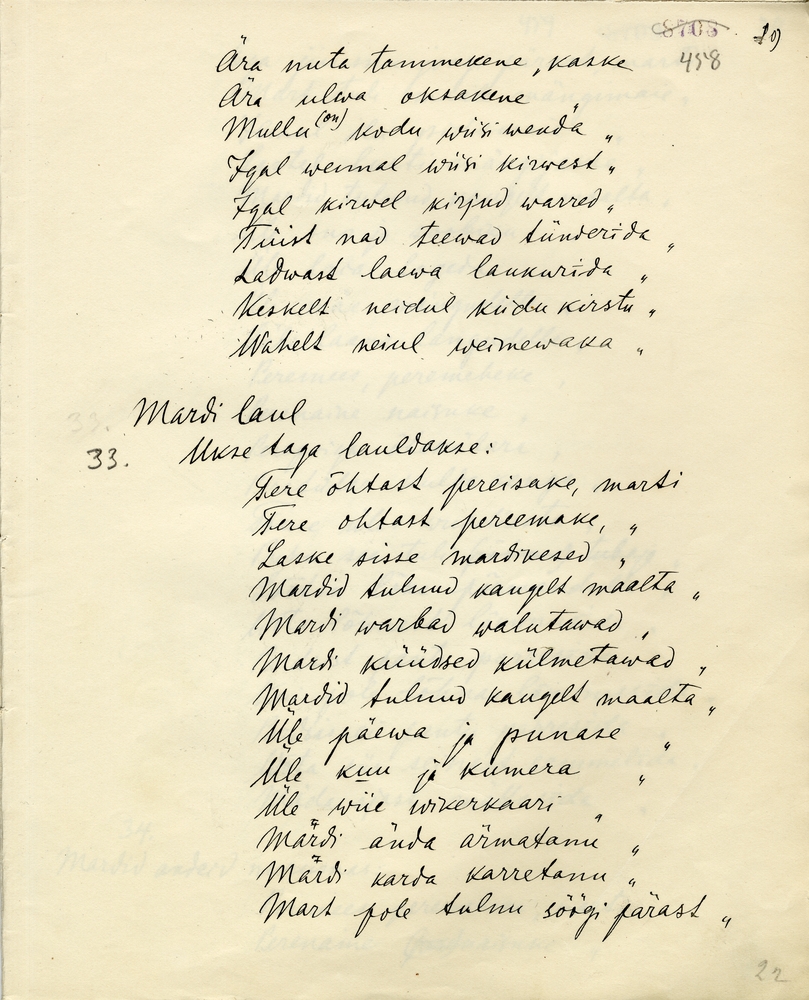 8705
20)
458
Ära nuta tammekene, kaske
Ära ulwa oksakene „
Mullu (on) kodu wiisi wenda „
Igal wennal wiisi kirwest „
Igal kirwel kirjud warred „
Tüist nad teewad tünderida „
Ladwast laewa laukurida „
Keskelt neidul kiidu kirstu „
Wahelt neiul weimewaka „
Mardi laul
33. Ukse taga lauldakse:
Tere õhtast pereisake, marti
Tere ohtast pereemake, „
Laske sisse mardikesed „
Mardid tulnud kaugelt maalta „
Mardi warbad walutawad „
Mardi küüdsed külmetawad „
Mardid tulnud kaugelt maalta „
Üle päewa ja punase „
Üle kuu ja kumera „
Üle wiie wikerkaari „
Märdi ända ärmatanu „
Märdi karda karretanu „
Mart pole tulnu söögi pärast „
22